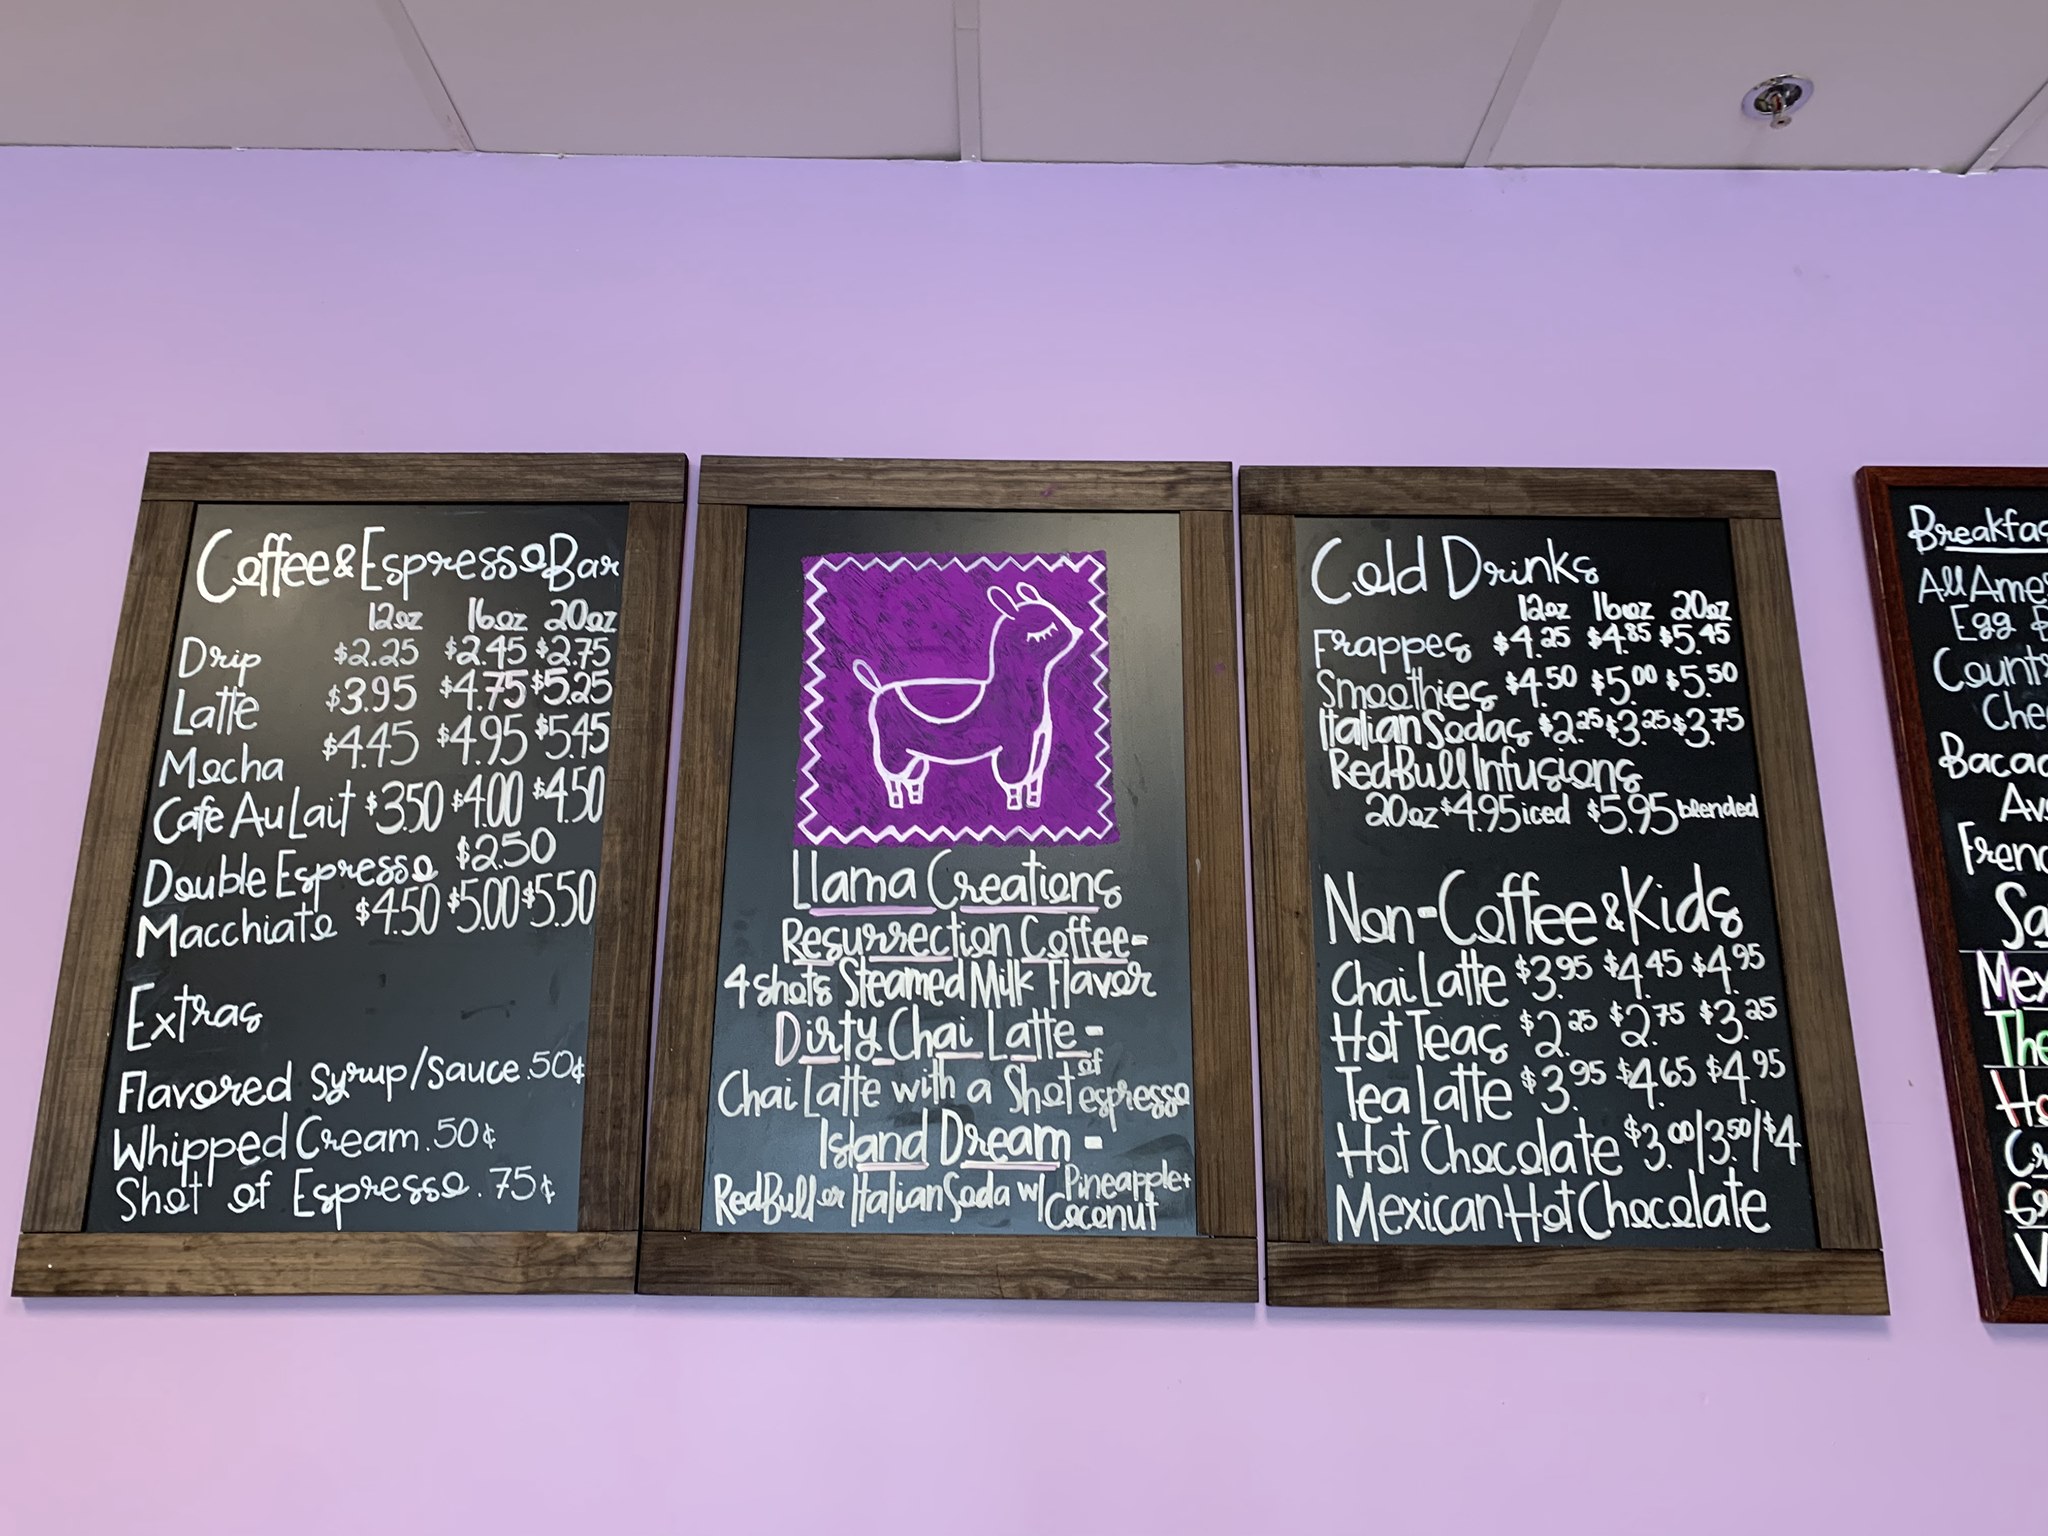 Coffee & Espresso Bar
12oz 16oz 20oz
Drip $2.25 $2.45 $2.75
Latte $3.95 $4.75 $5.25
Mocha $4.45 $4.95 $5.45
Cafe Au Lait $3.50 $4.00 $4.50
Double Espresso $2.50
Macchiato $4.50 $5.00 $5.50
Extras
Flavored Syrup/Sauce .50¢
Whipped Cream .50¢
Shot of Espresso .75¢
Llama Creations
Resurrection Coffee-
4 shots Steamed Milk Flavor
Dirty Chai Latte -
Chai Latte with a Shot of espresso
Island Dream -
RedBull or Italian Soda w/ Pineapple + Coconut
Cold Drinks
12oz 16oz 20oz
Frappes $4.25 $4.85 $5.45
Smoothies $4.50 $5.00 $5.50
Italian Sodas $2.25 $3.25 $3.75
RedBull Infusions
20oz $4.95 iced $5.95 blended
Non-Coffee & Kids
Chai Latte $3.95 $4.45 $4.95
Hot Teas $2.25 $2.75 $3.25
Tea Latte $3.95 $4.65 $4.95
Hot Chocolate $3.00/3.50/$4
Mexican Hot Chocolate
Egg